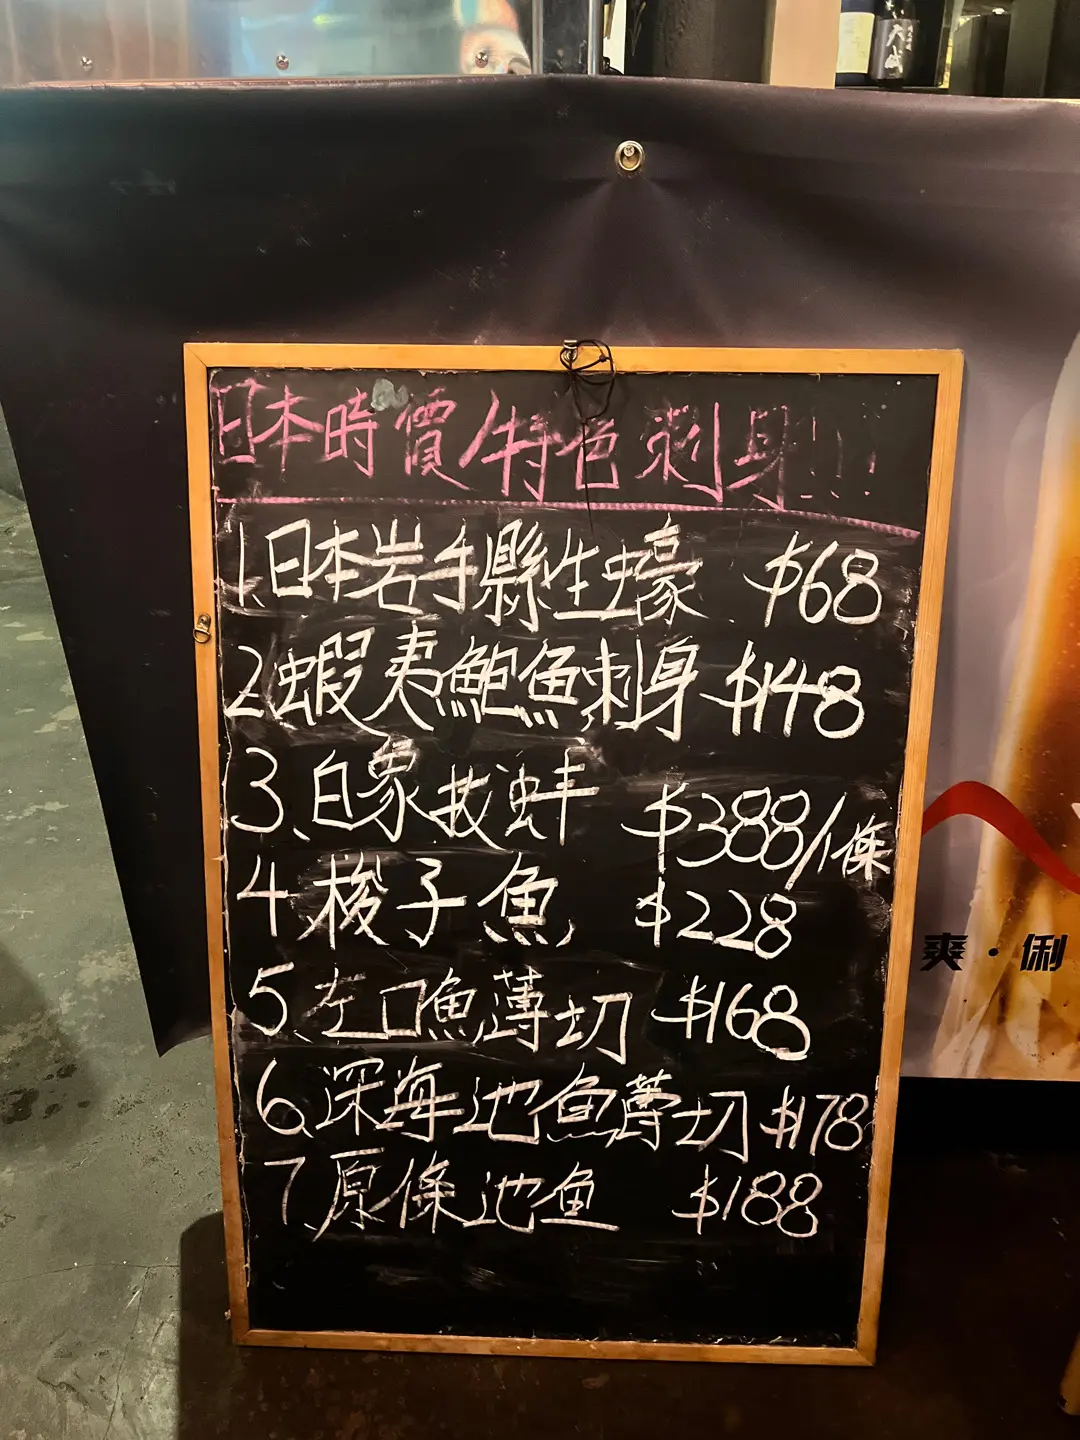 日本時價/特色刺身!!!
1.日本岩手縣生蠔 $68
2.蝦夷鮑魚刺身 $148
3、白象拔蚌 $388/1條
4、梭子魚 $228
5、左口魚薄切 $168
6、深海池魚薄切 $178
7、原條池魚 $188
爽·俐